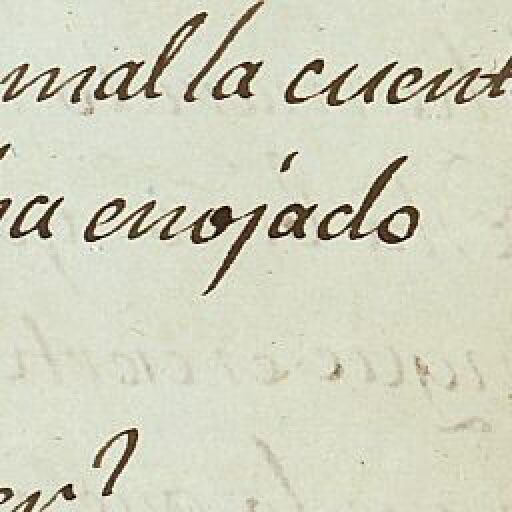 mal la cuent
ha enojado
er?